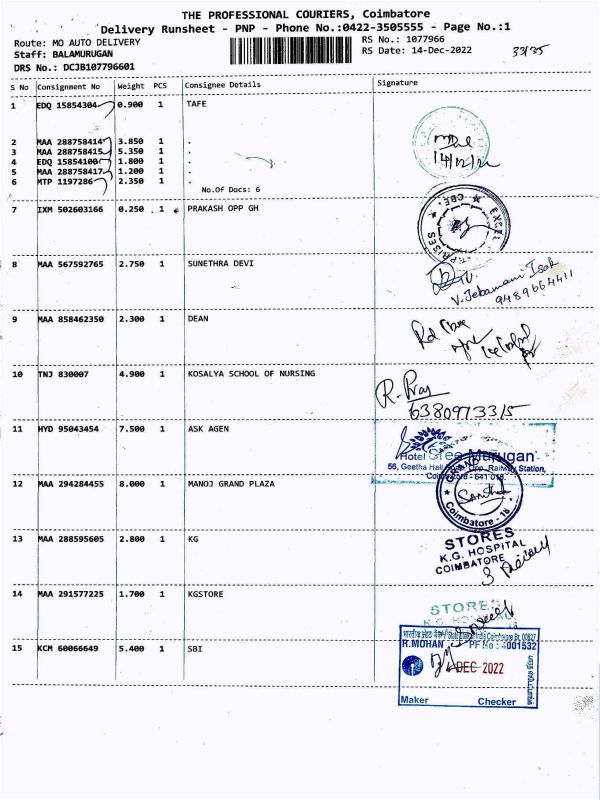 THE PROFESSIONAL COURIERS, Coimbatore
Delivery Runsheet - PNP - Phone No.:0422-3505555 - Page No.:1
Route: MO AUTO DELIVERY
RS No.: 1077966
Staff: BALAMURUGAN
RS Date: 14-Dec-2022
33/35
DRS No.: DCJB107796601
S No Consignment No Weight PCS Consignee Details Signature
1 EDQ 15854304 0.900 1 TAFE
2 MAA 288758414 3.850 1 .
3 MAA 288758415 5.350 1 .
4 EDQ 15854100 1.800 1 .
5 MAA 288758417 1.200 1 .
6 MTP 1197286 2.350 1 .
No.Of Docs: 6
14/12/22
7 IXM 502603166 0.250 1 PRAKASH OPP GH
CBE
EXCEL
8 MAA 567592765 2.750 1 SUNETHRA DEVI
V. Jebamani Isak
9489664411
9 MAA 858462350 2.300 1 DEAN
10 TNJ 830007 4.900 1 KOSALYA SCHOOL OF NURSING
6380973315
11 HYD 95043454 7.500 1 ASK AGEN
Hotel Sree Murugan
56, Geetha Hall Road, Opp. Railway Station,
Coimbatore - 641 018.
12 MAA 294284455 8.000 1 MANOJ GRAND PLAZA
Coimbatore - 18
13 MAA 288595605 2.800 1 KG
STORES
K.G. HOSPITAL
COIMBATORE
14 MAA 291577225 1.700 1 KGSTORE
STORES
K.G. HOSPITAL
15 KCM 60066649 5.400 1 SBI
R.MOHAN PF No : 4001532
DEC 2022
Maker Checker